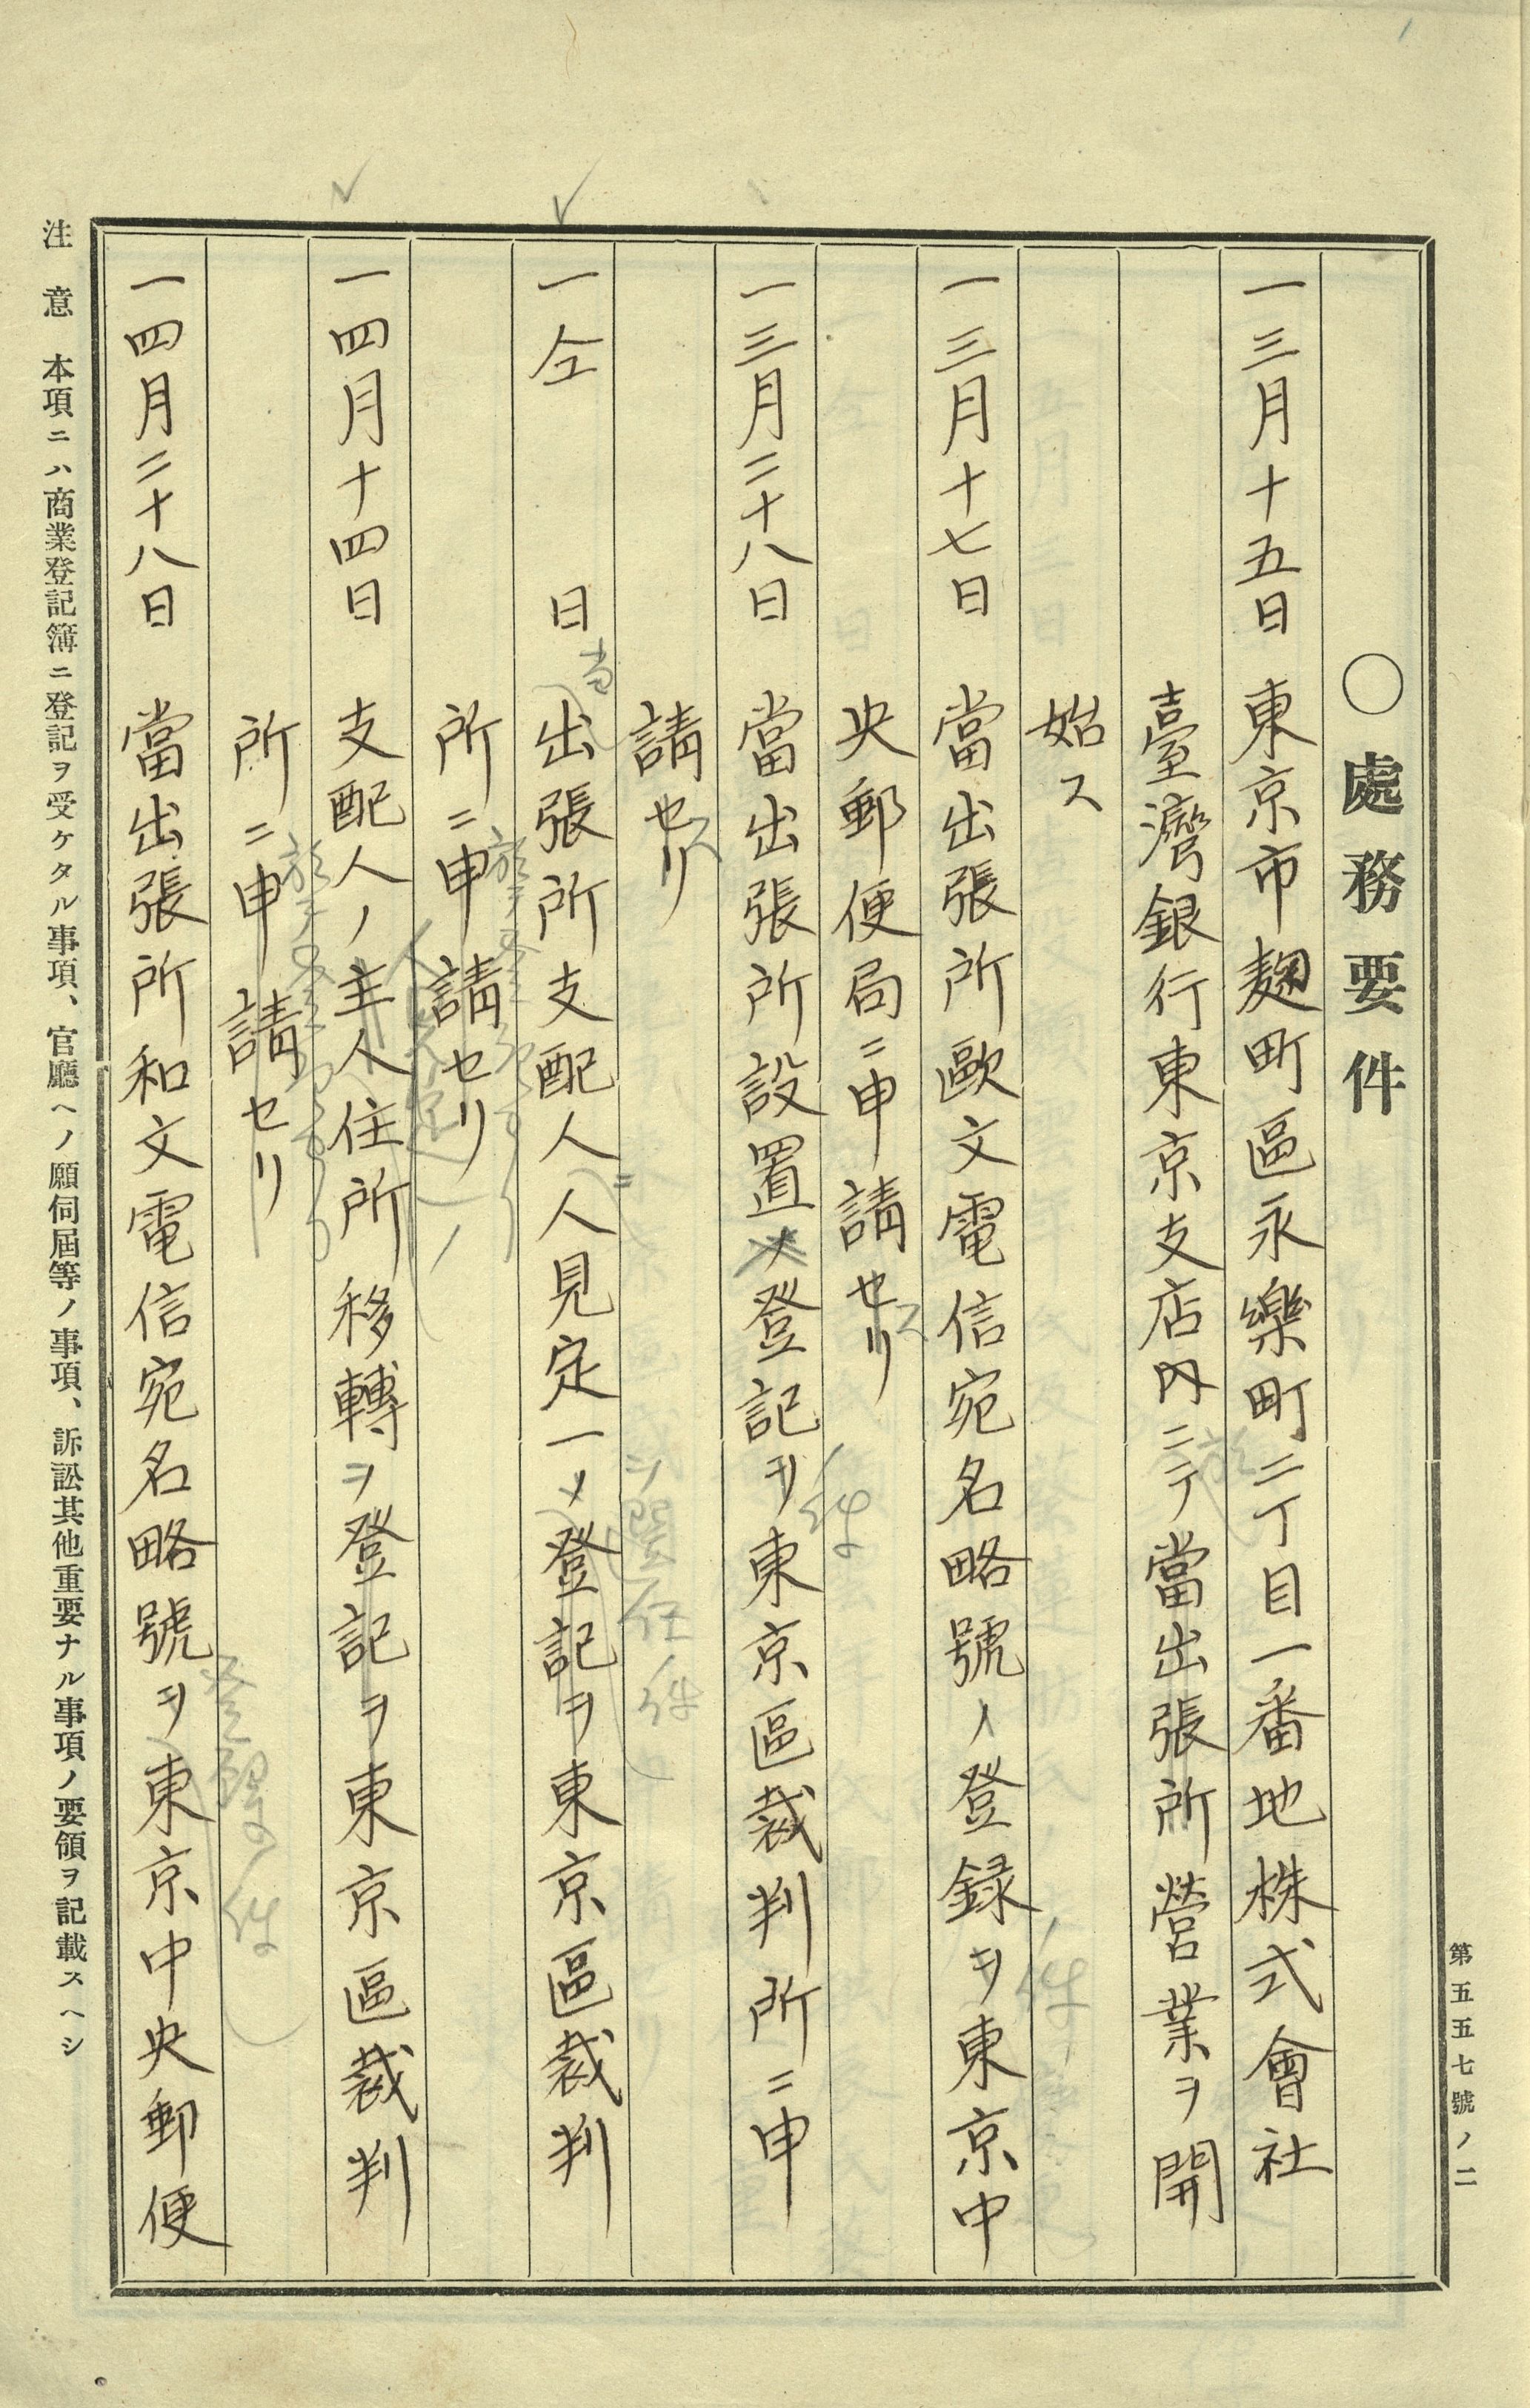 第五五七號ノ二
〇處務要件
一三月十五日　東京市麹町區永樂町二丁目一番地株式會社
臺灣銀行東京支店内ニテ當出張所營業ヲ開
始ス
一三月十七日　當出張所歐文電信宛名略號ノ登録ヲ東京中
央郵便局ニ申請セリ
一三月二十八日　當出張所設置ノ登記ヲ東京區裁判所ニ申
請セリ
一仝　日　出張所支配人人見定一ノ登記ヲ東京區裁判
所ニ申請セリ
一四月十四日　支配人ノ主人住所移轉ヲ登記ヲ東京區裁判
所ニ申請セリ
一四月二十八日　當出張所和文電信宛名略號ヲ東京中央郵便
注意　本項ニハ商業登記簿ニ登記ヲ受ケタル事項、官廳ヘノ願伺屆等ノ事項、訴訟其他重要ナル事項ノ要領ヲ記載スヘシ